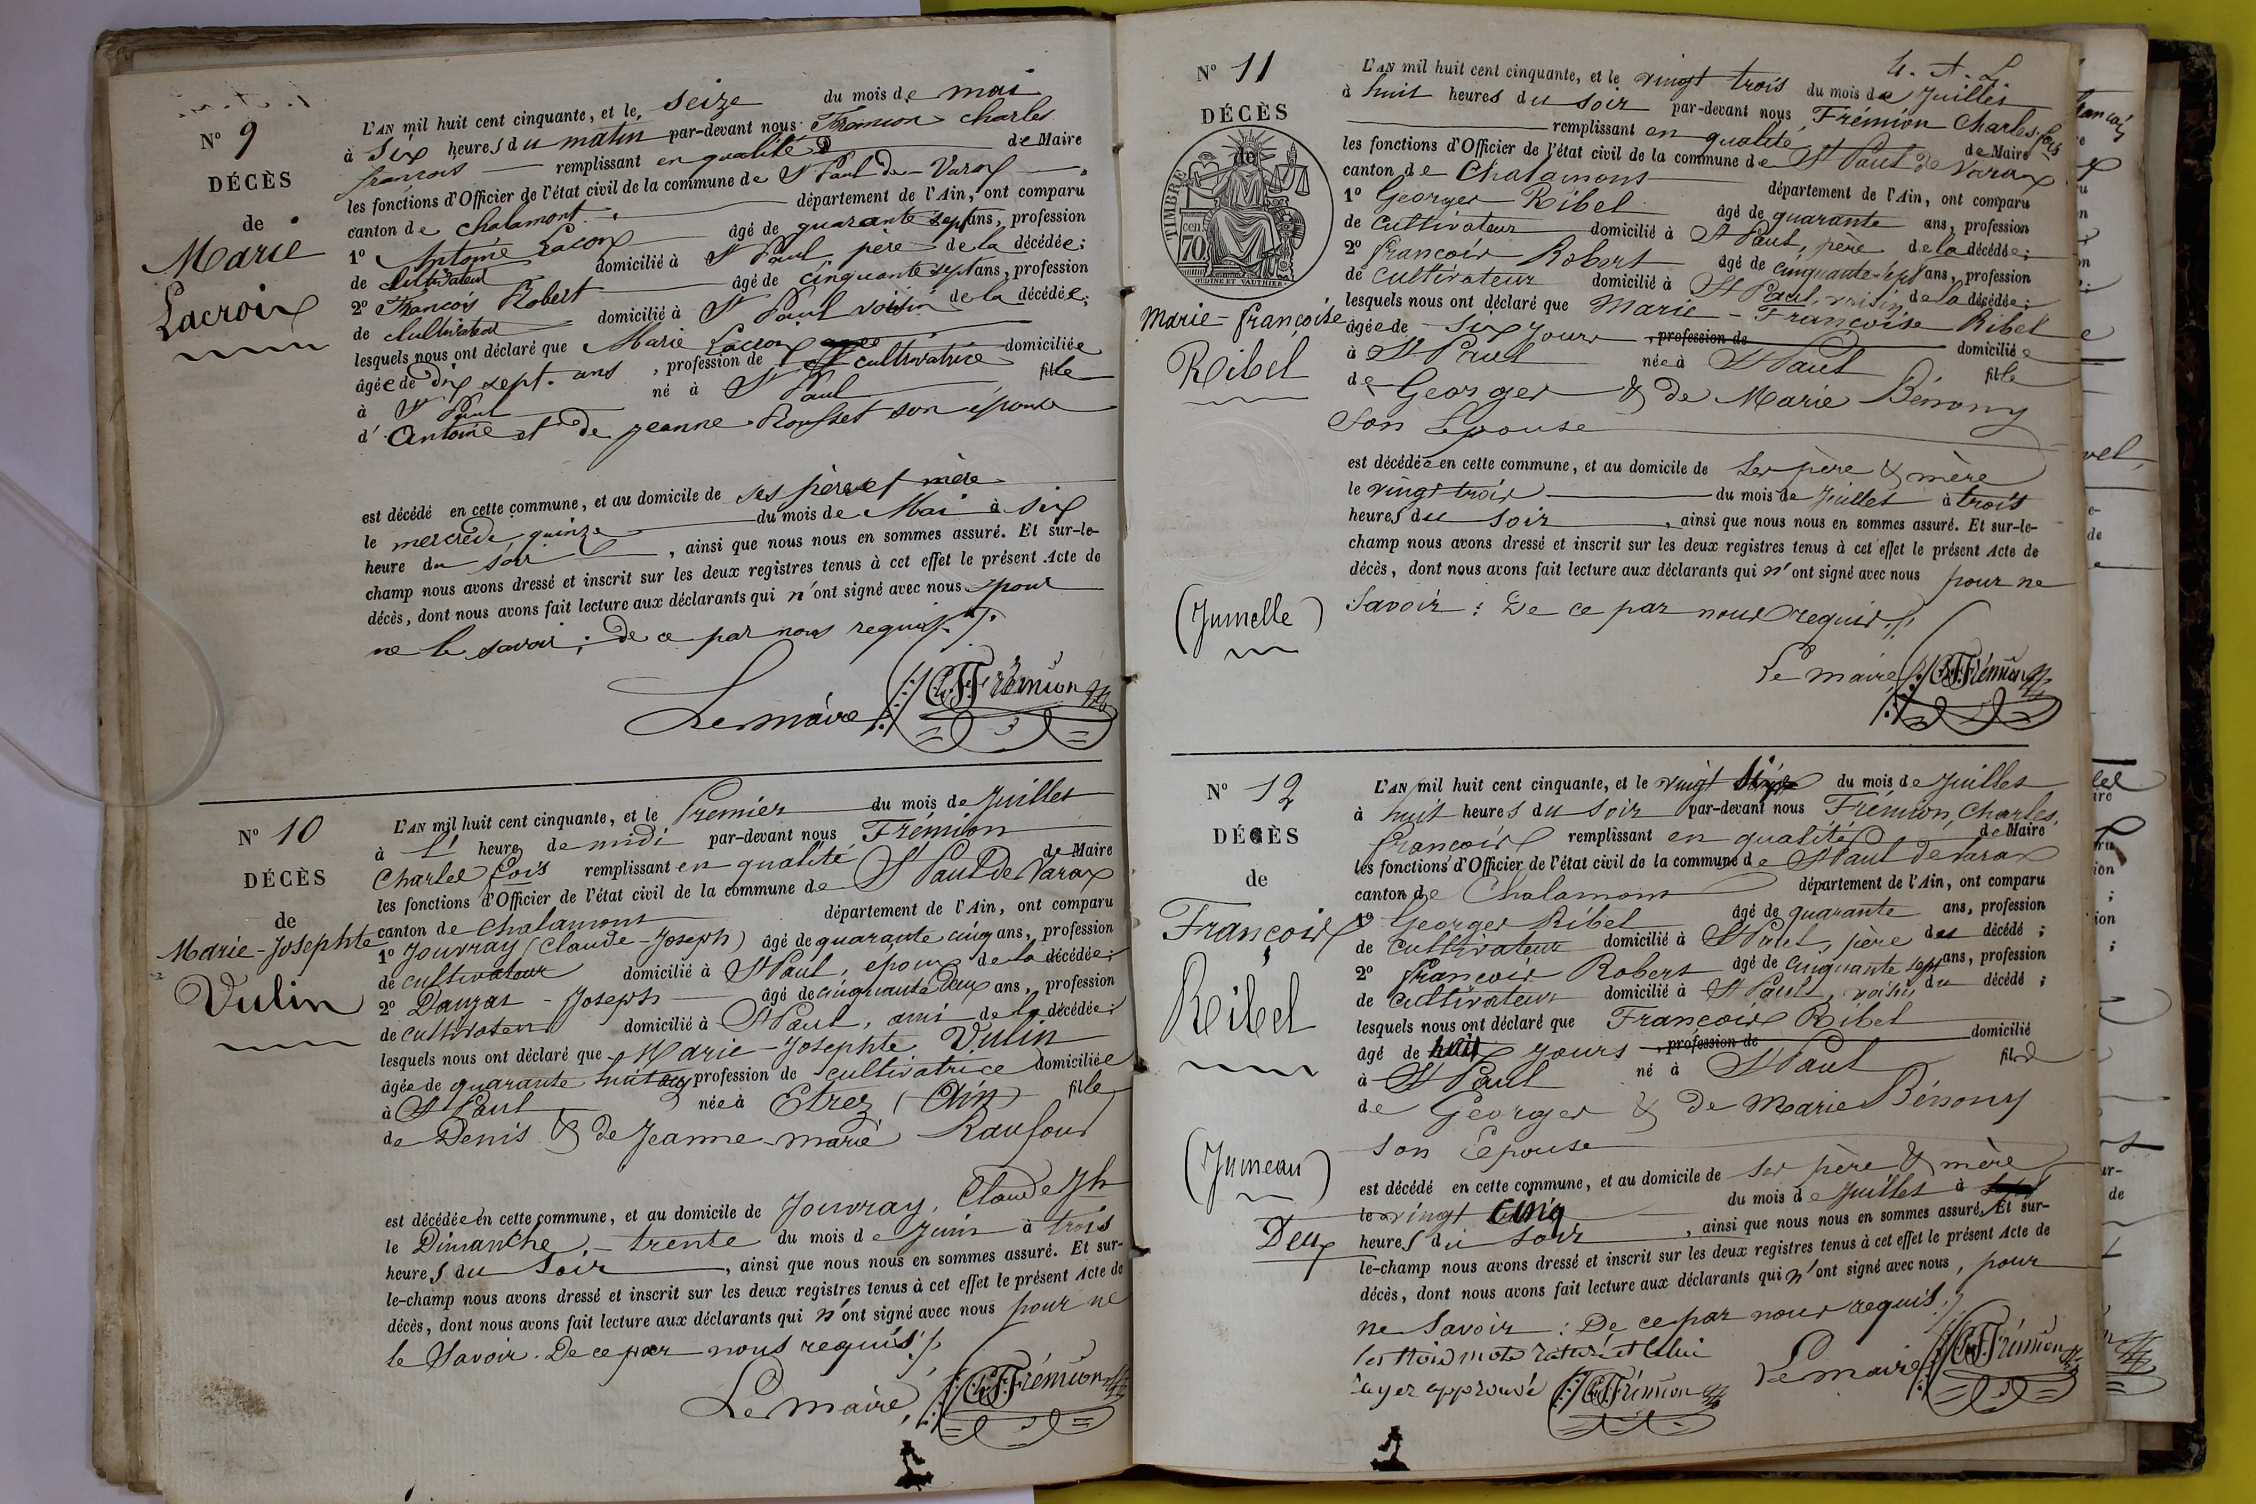 N° 9
DÉCÈS
de
Marie
Lacroix
L'AN mil huit cent cinquante, et le seize du mois de mai
à six heures du matin par-devant nous Fremion Charles
francois remplissant en qualité de Maire
les fonctions d'Officier de l'état civil de la commune de St Paul de Varax
canton de Chalamont département de l'Ain, ont comparu
1° Antoine Lacroix âgé de quarante sept ans, profession
de cultivateur domicilié à St Paul, père de la décédée;
2° Francois Robert âgé de cinquante sept ans, profession
de cultivateur domicilié à St Paul voisin de la décédée;
lesquels nous ont déclaré que Marie Lacroix
âgée de dix sept ans, profession de cultivatrice domiciliée
à St Paul né à St Paul fille
d'Antoine et de jeanne Rousset son épouse
est décédé en cette commune, et au domicile de ses père et mère
le mercredi quinze du mois de Mai à six
heure du soir, ainsi que nous nous en sommes assuré. Et sur-le-
champ nous avons dressé et inscrit sur les deux registres tenus à cet effet le présent Acte de
décès, dont nous avons fait lecture aux déclarants qui n'ont signé avec nous pour
ne le savoir; de ce par nous requis./.
Le maire C. F. Frémion
N° 10
DÉCÈS
de
Marie-Josephte
Vulin
L'AN mil huit cent cinquante, et le Premier du mois de Juillet
à l' heure de midi par-devant nous Frémion
Charles fois remplissant en qualité de Maire
les fonctions d'Officier de l'état civil de la commune de St Paul De Varax
canton de Chalamont département de l'Ain, ont comparu
1° Jouvray (Claude-Joseph) âgé de quarante cinq ans, profession
de cultivateur domicilié à St Paul, epoux de la décédée;
2° Danjat - Joseph âgé de cinquante deux ans, profession
de cultivateur domicilié à St Paul, ami de la décédée;
lesquels nous ont déclaré que Marie-Josephte Vulin
âgée de quarante huit ans profession de cultivatrice domiciliée
à St Paul née à Etrez (Ain) fille
de Denis & de Jeanne-marie
est décédée en cette commune, et au domicile de Jouvray, Claude Jh
le Dimanche, - trente du mois de Juin à trois
heures du Soir, ainsi que nous nous en sommes assuré. Et sur-
le-champ nous avons dressé et inscrit sur les deux registres tenus à cet effet le présent Acte de
décès, dont nous avons fait lecture aux déclarants qui n'ont signé avec nous pour ne
le Savoir. De ce par nous requis:/.
Le maire, C. F. Frémion
4. A. L.
N° 11
DÉCÈS
de
TIMBRE
70 cen
OUDINÉ ET VAUTHIER
Marie-françoise
Ribel
(Jumelle)
L'AN mil huit cent cinquante, et le vingt trois du mois de Juillet
à huit heures du soir par-devant nous Frémion Charles fois
remplissant en qualité de Maire
les fonctions d'Officier de l'état civil de la commune de St Paul de Varax
canton de Chalamont département de l'Ain, ont comparu
1° Georges Ribel âgé de quarante ans, profession
de cultivateur domicilié à St Paul, père de la décédée;
2° françois Robert âgé de cinquante-sept ans, profession
de cultivateur domicilié à St Paul, voisin de la décédée;
lesquels nous ont déclaré que Marie-Françoise Ribel
âgée de six jours, profession de domiciliée
à St Paul née à St Paul fille
de Georges & de Marie Bénony
son Epouse
est décédée en cette commune, et au domicile de ses père & mère
le vingt trois du mois de Juillet à trois
heures du soir, ainsi que nous nous en sommes assuré. Et sur-le-
champ nous avons dressé et inscrit sur les deux registres tenus à cet effet le présent Acte de
décès, dont nous avons fait lecture aux déclarants qui n'ont signé avec nous pour ne
Savoir: De ce par nous requis:/.
Le maire C. F. Frémion
N° 12
DÉCÈS
de
François
Ribel
(Jumeau)
Deux
L'AN mil huit cent cinquante, et le vingt six du mois de Juillet
à huit heures du soir par-devant nous Frémion, Charles,
François remplissant en qualité de Maire
les fonctions d'Officier de l'état civil de la commune de St Paul de Varax
canton de Chalamont département de l'Ain, ont comparu
1° Georges Ribel âgé de quarante ans, profession
de cultivateur domicilié à St Paul, père du décédé;
2° françois Robert âgé de cinquante sept ans, profession
de cultivateur domicilié à St Paul, voisin du décédé;
lesquels nous ont déclaré que François Ribel
âgé de huit jours, profession de domicilié
à St Paul né à St Paul fils
de Georges & de Marie Bénony
son Epouse
est décédé en cette commune, et au domicile de ses père & mère
le vingt cinq du mois de Juillet à
heures du soir, ainsi que nous nous en sommes assuré. Et sur-
le-champ nous avons dressé et inscrit sur les deux registres tenus à cet effet le présent Acte de
décès, dont nous avons fait lecture aux déclarants qui n'ont signé avec nous, pour
ne Savoir: De ce par nous requis:/.
les trois mots raturé et celui
rayer approuvé C. F. Frémion Le maire C. F. Frémion